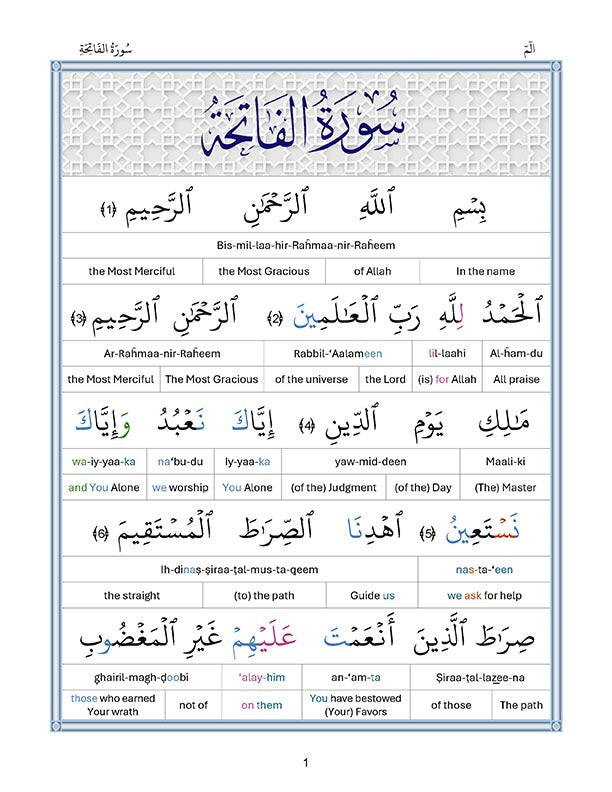 سُورَةُ الفَاتِحَةِ الٓمّٓ
سُورَةُ الفَاتِحَةُ
بِسْمِ ٱللَّهِ ٱلرَّحْمَٰنِ ٱلرَّحِيمِ ﴿1﴾
Bis-mil-laa-hir-Raĥmaa-nir-Raĥeem
the Most Merciful the Most Gracious of Allah In the name
ٱلْحَمْدُ لِلَّهِ رَبِّ ٱلْعَٰلَمِينَ ﴿2﴾ ٱلرَّحْمَٰنِ ٱلرَّحِيمِ ﴿3﴾
Ar-Raĥmaa-nir-Raĥeem Rabbil-‘Aalameen lil-laahi Al-ĥam-du
the Most Merciful The Most Gracious of the universe the Lord (is) for Allah All praise
مَٰلِكِ يَوْمِ ٱلدِّينِ ﴿4﴾ إِيَّاكَ نَعْبُدُ وَإِيَّاكَ
wa-iy-yaa-ka na‘bu-du Iy-yaa-ka yaw-mid-deen Maali-ki
and You Alone we worship You Alone (of the) Judgment (of the) Day (The) Master
نَسْتَعِينُ ﴿5﴾ ٱهْدِنَا ٱلصِّرَاطَ ٱلْمُسْتَقِيمَ ﴿6﴾
Ih-dinaș-șiraa-țal-mus-ta-qeem nas-ta-‘een
the straight (to) the path Guide us we ask for help
صِرَاطَ ٱلَّذِينَ أَنْعَمْتَ عَلَيْهِمْ غَيْرِ ٱلْمَغْضُوبِ
ghairil-magh-ḑoobi ‘alay-him an-‘am-ta Șiraa-țal-lazee-na
those who earned Your wrath not of on them You have bestowed (Your) Favors of those The path
1